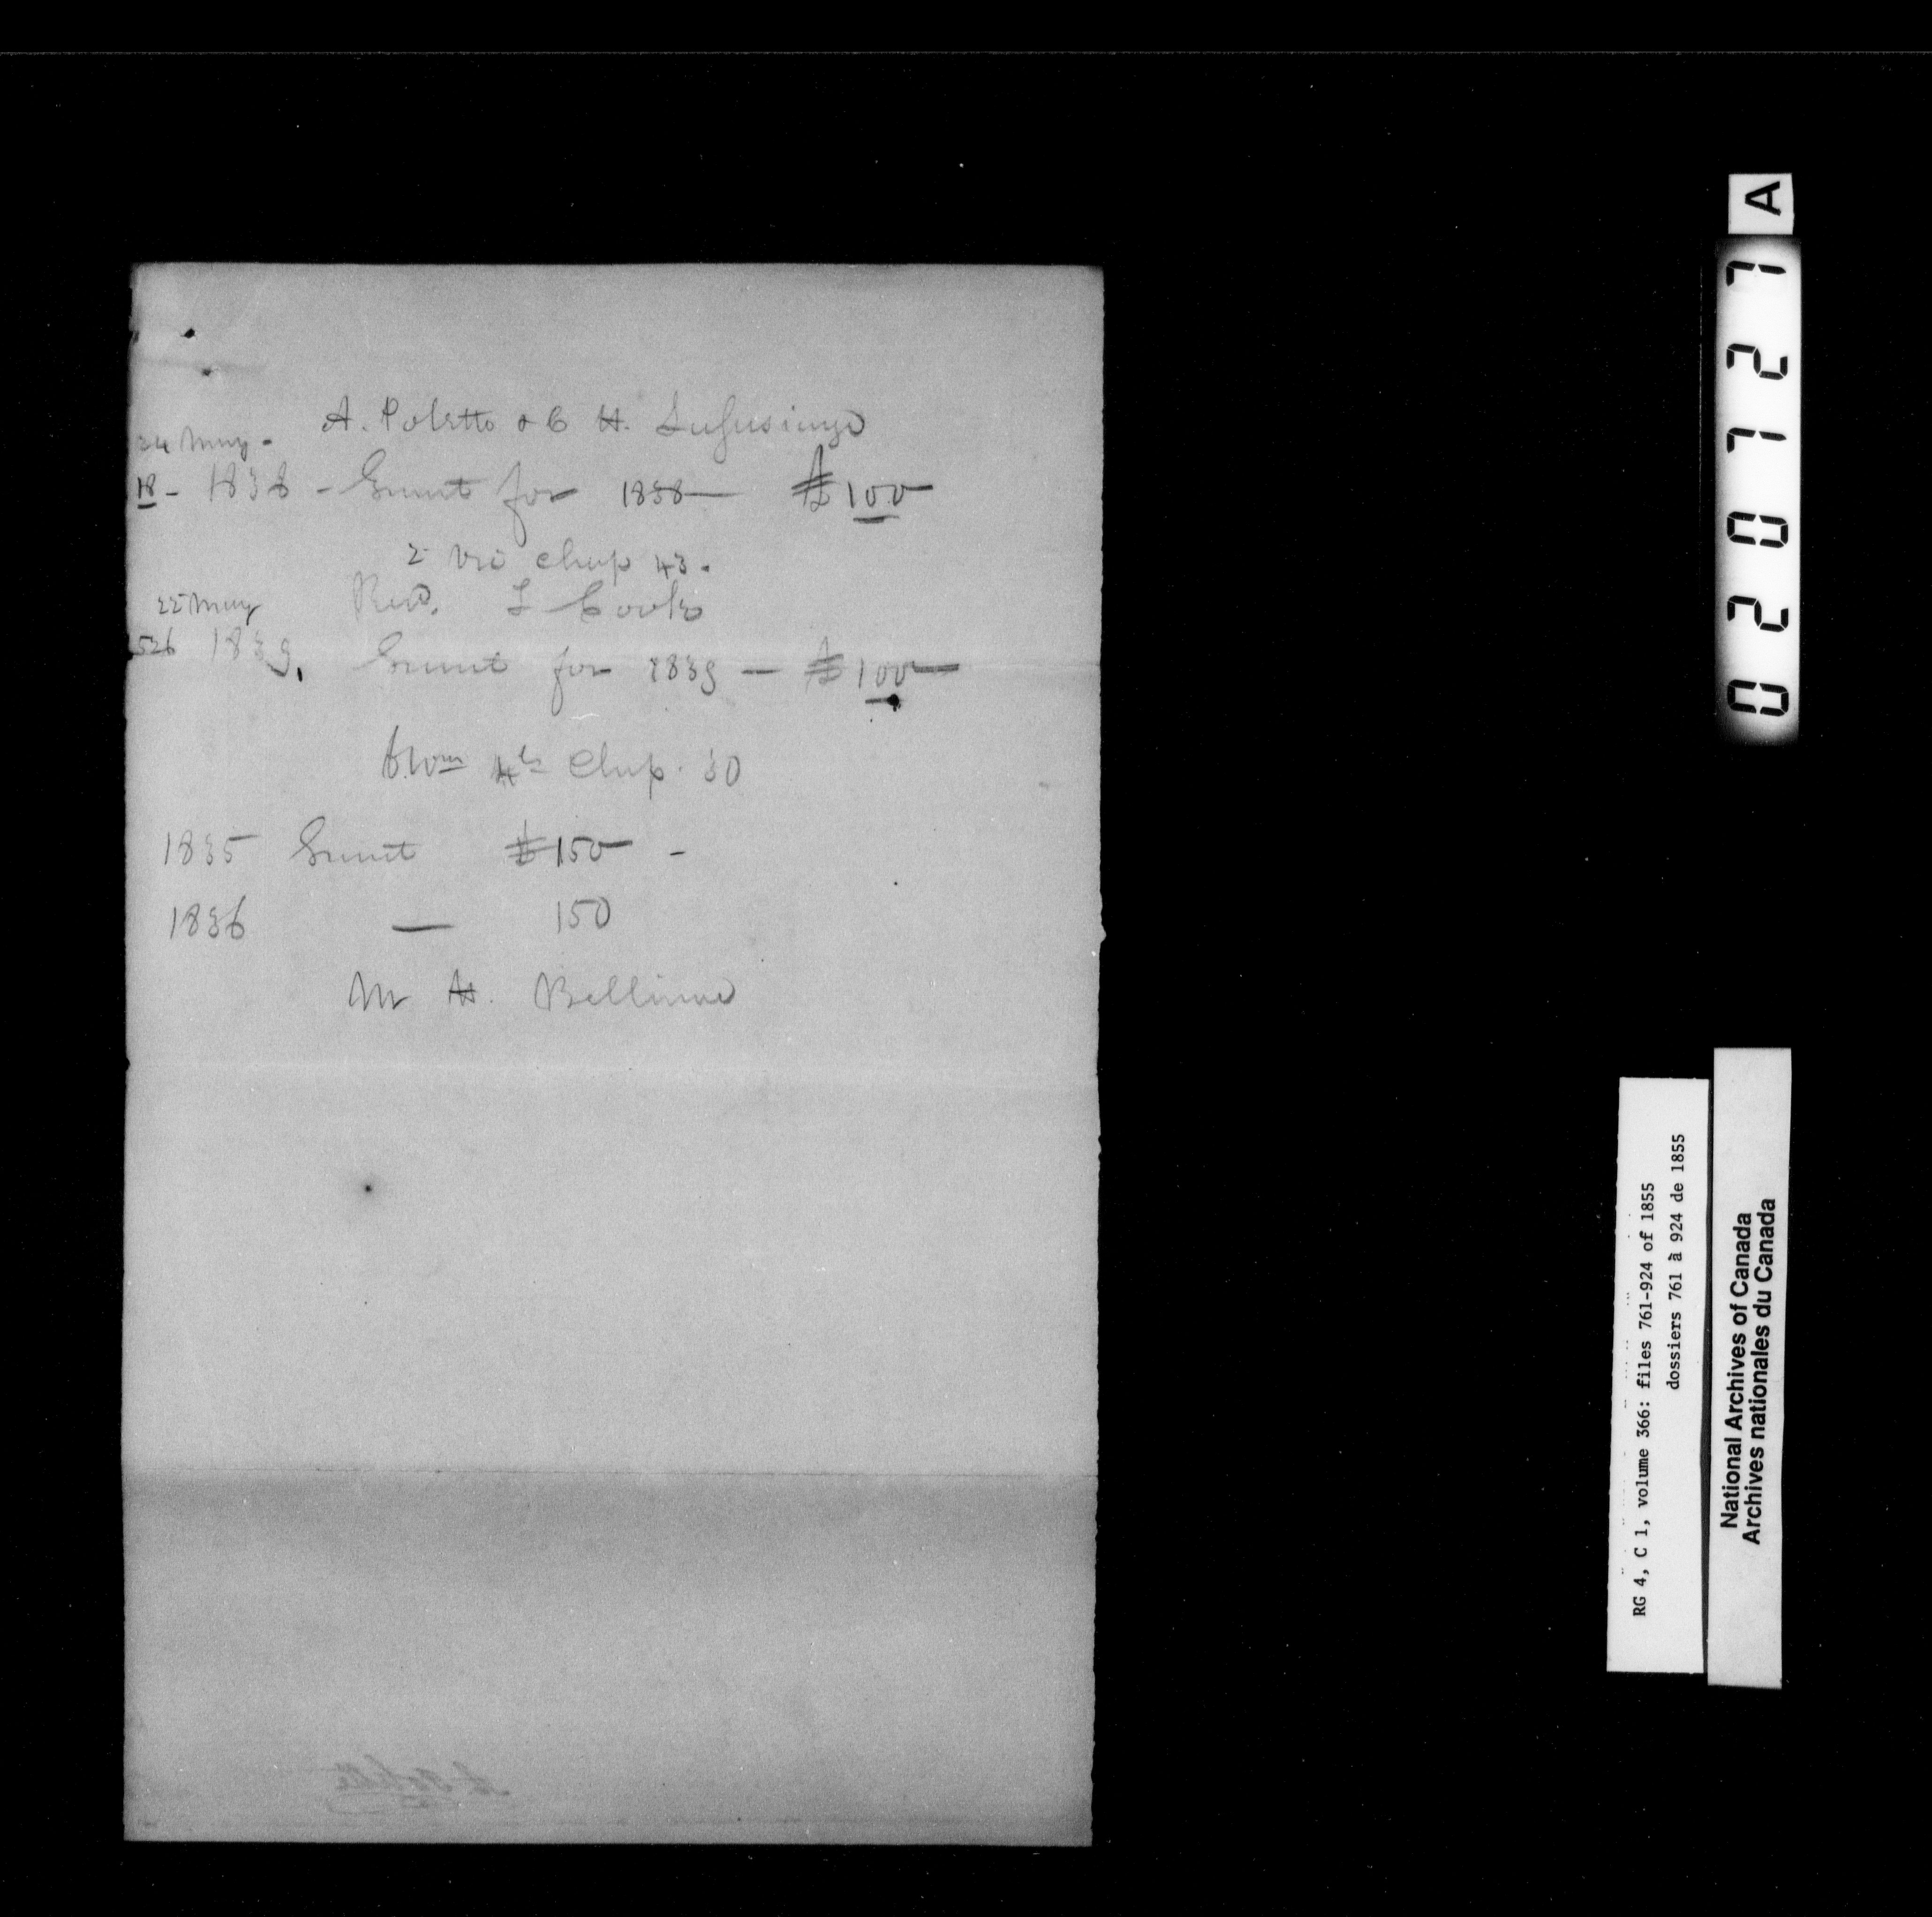 A. Polette & C H. Lassiseraye
24 May -
18 - 1838 - Grant for 1838 — £100
2 Vic Chap 43.
22 May Revd. J Cook
526 1839. Grant for 1839 — £100
6 Wm 4th Chap. 30
1835 Grant £150 -
1836 — 150
Mr H. Bellerive
A Polette
020727
A
RG 4, C 1, volume 366: files 761-924 of 1855
dossiers 761 à 924 de 1855
National Archives of Canada
Archives nationales du Canada